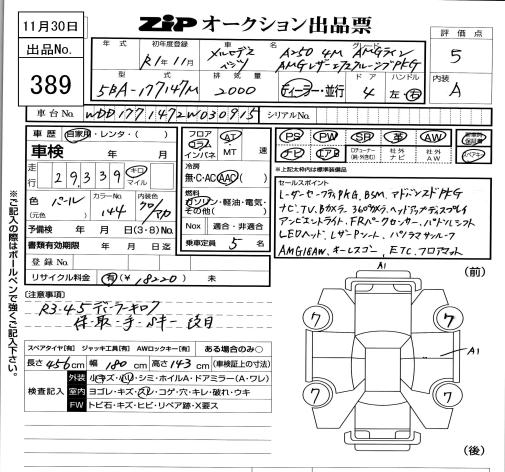 11月30日
出品No.
389
ZIP オークション出品票
評価点
5
内装
A
年式 初年度登録 車名 グレード
R1年11月 メルセデスベンツ A250 4M AMGライン
AMGレザーエクスクルーシブPKG
型式 排気量 ドア ハンドル
5BA-177147M 2000 ディーラー・並行 4 左・右
車台No. WDD1771472W030915 シリアルNo.
車歴 自家用・レンタ・( )
車検 年 月
走行 29,339 キロ マイル
色 パール カラーNo. 144 内装色 クロ
(元色)
予備検 年 月 日(3・8)No.
書類有効期限 年 月 日迄
登録No.
リサイクル料金 有(¥18220)未
フロア コラム インパネ AT・MT 速
冷房
無・C・AC・AAC( )
燃料
ガソリン・軽油・電気・その他( )
Nox 適合・非適合
乗車定員 5 名
PS PW SR 革 AW
ナビ エアB 社外ナビ 社外AW
※上記太枠内は標準装備品
新車時保証書
スペアキー
セールスポイント
レーダーセーフティPKG、BSM、アドバンスドPKG
ナビ、TV、Bカメラ、360°カメラ、ヘッドアップディスプレイ
アンビエントライト、FRパークセンサー、パドルシフト
LEDヘッド、レザーPシート、パノラマサンルーフ
AMG18AW、キーレスゴー、ETC、フロアマット
[注意事項]
R3.4.5 ディーラーキロク
保・取・手・Sキー
スペアタイヤ[有] ジャッキ工具[有] AWロックキー[有] ある場合のみ○
長さ 456cm 幅 180cm 高さ 143cm (車検証上の寸法)
検査記入
外装 小キズ・凹・シミ・ホイルA・ドアミラー(A・ワレ)
室内 ヨゴレ・キズ・スレ・コゲ・穴・キレ・破れ・ウキ
FW トビ石・キズ・ヒビ・リペア跡・X要ス
A1
(前)
7
7
A1
7
7
(後)
※ご記入の際はボールペンで強くご記入下さい。